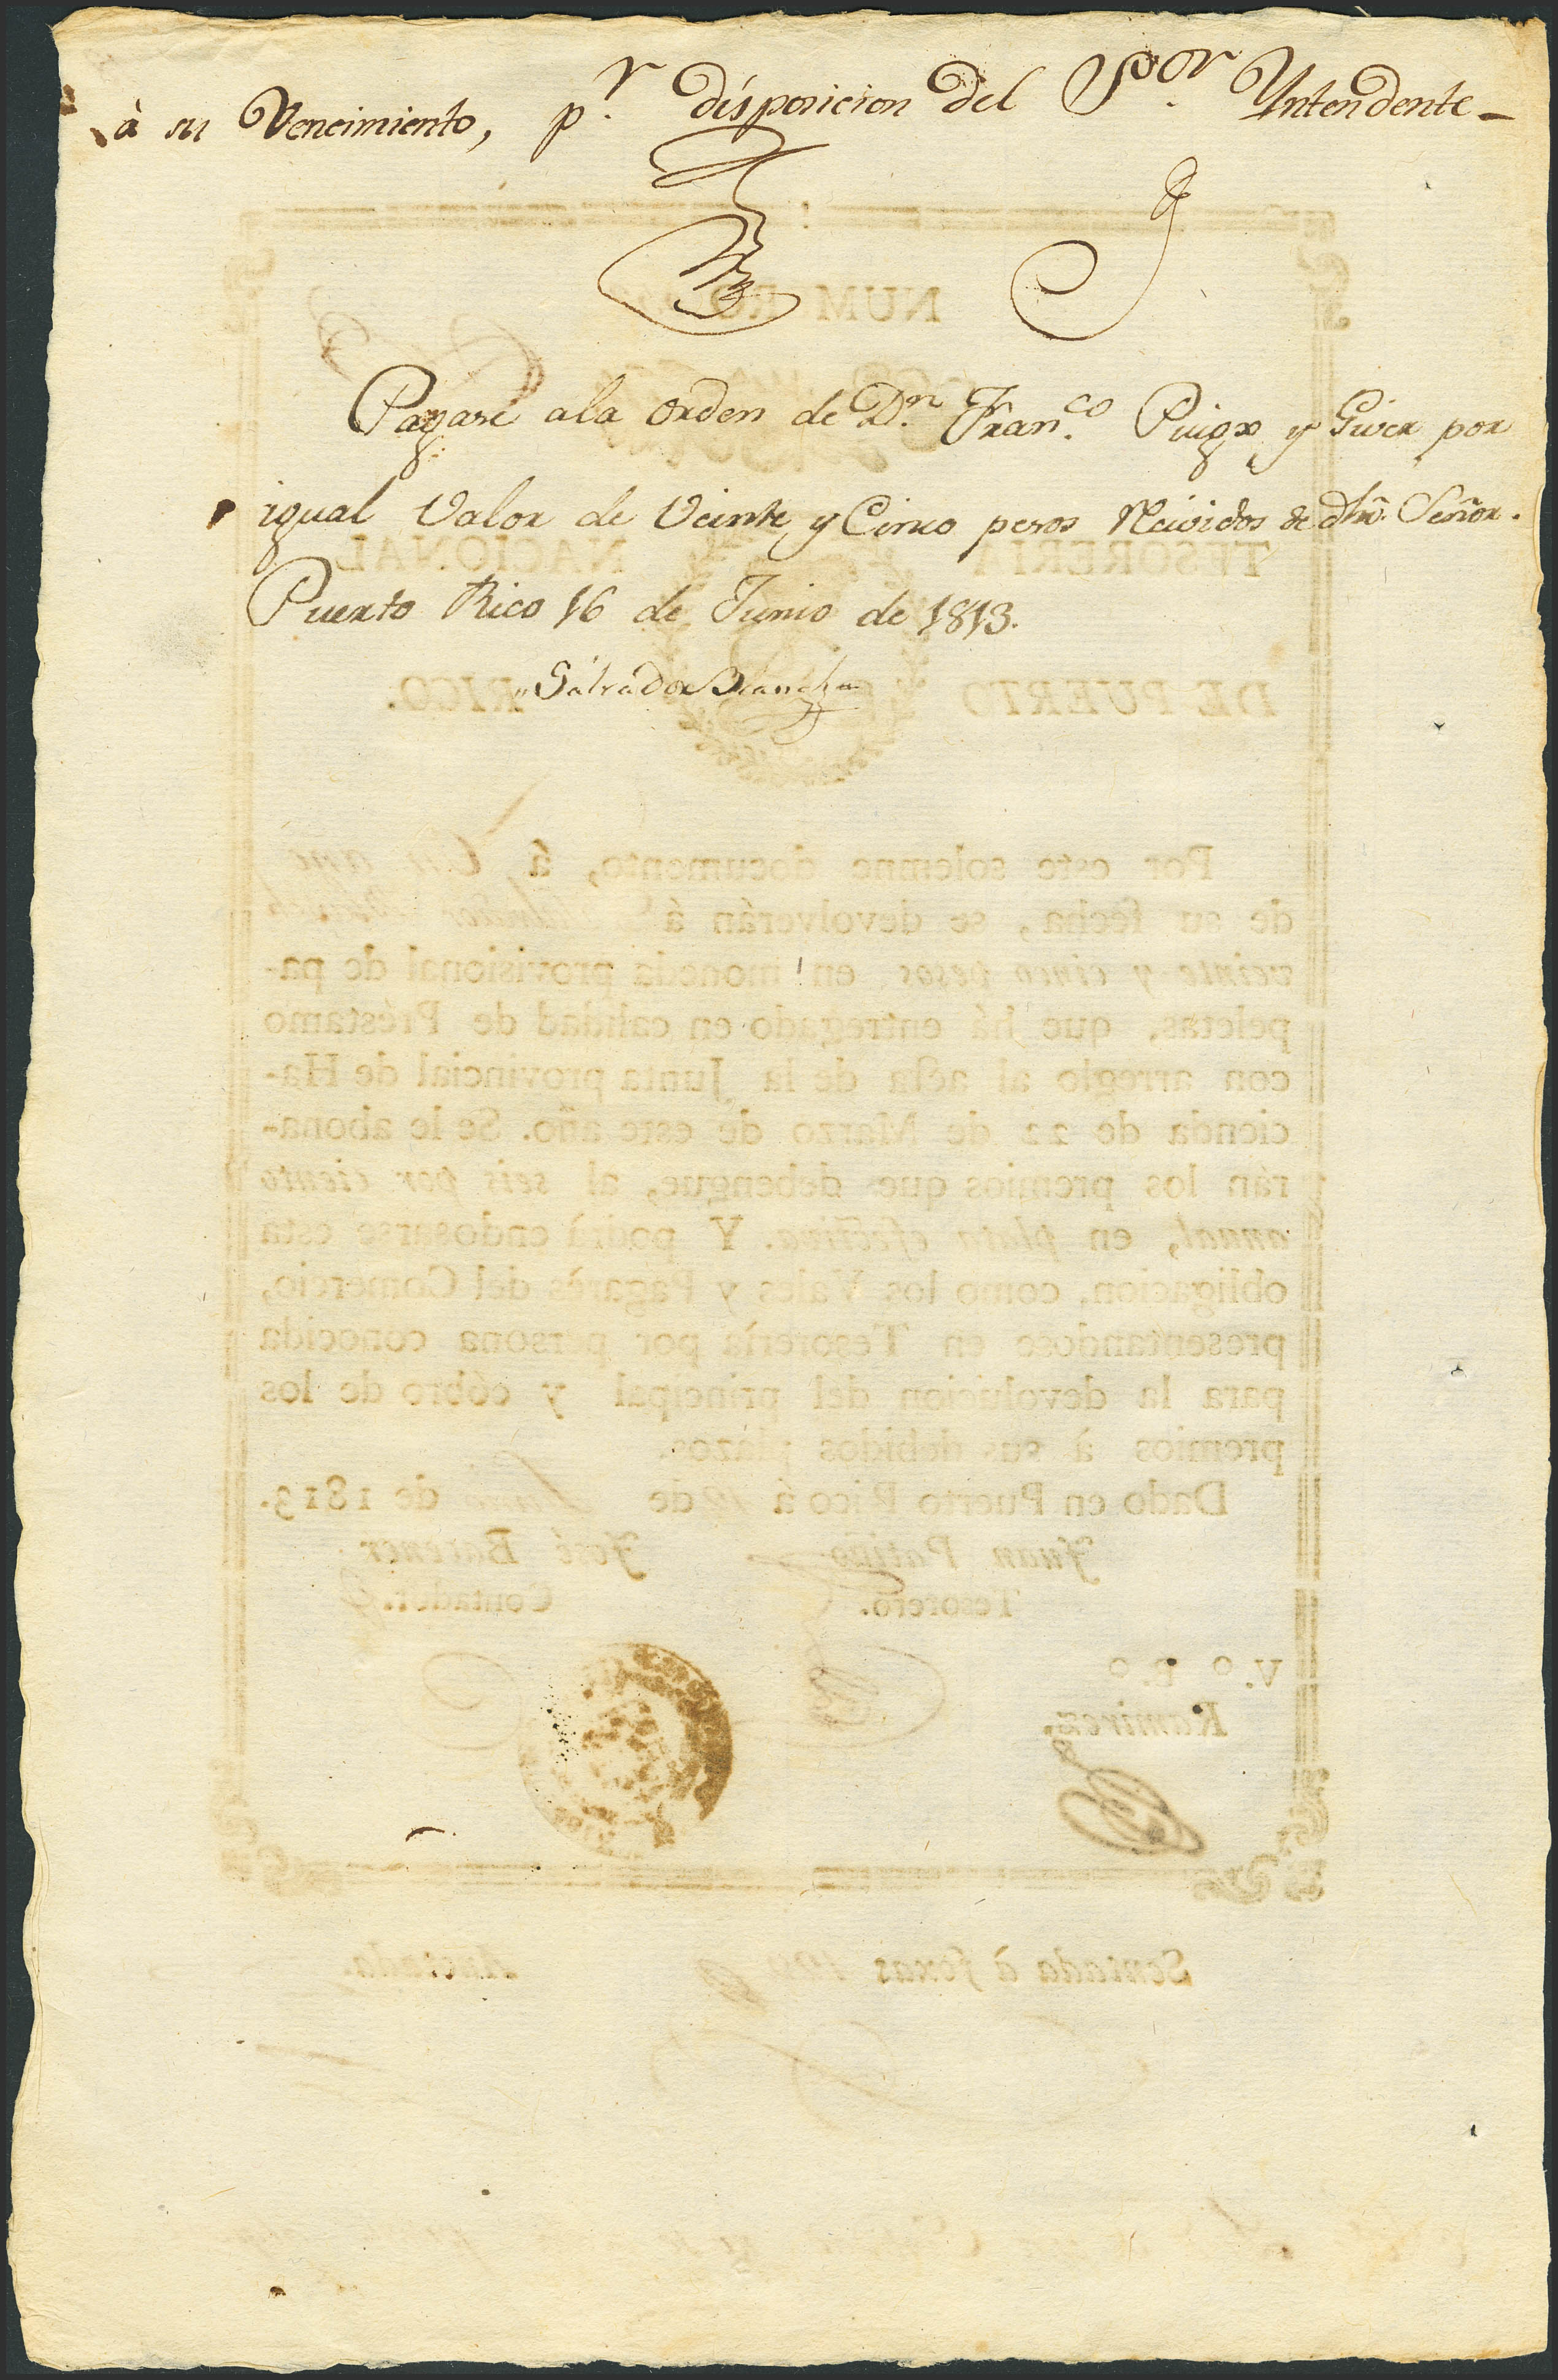 à su Vencimiento, p.r disposicion del S.or Yntendente_
Pagase ala orden de D.n Fran.co Puig y por
igual Valor de Veinte y Cinco pesos Recividos de dho. Señor.
Puerto Rico 16 de Junio de 1813.
Salvador Blanch
NUMERO
TESORERIA NACIONAL
DE PUERTO RICO.
Por este solemne documento, á Un año
de su fecha, se devolverán á Salvador Blanch
veinte y cinco pesos en moneda provisional de pa-
peletas, que há entregado en calidad de Préstamo
con arreglo al acta de la Junta provincial de Ha-
cienda de 22 de Marzo de este año. Se le abona-
rán los premios que debengue, al seis por ciento
anual, en plata efectiva. Y podrà endosarse esta
obligacion, como los Vales y Pagarès del Comercio,
presentandose en Tesorería por persona conocida
para la devolucion del principal y cóbro de los
premios à sus debidos plázos.
Dado en Puerto Rico á de Junio de 1813.
Juan Patiño José Bacener
Tesorero. Contador.
V.º B.º
Ramirez,
Sentada à foxas